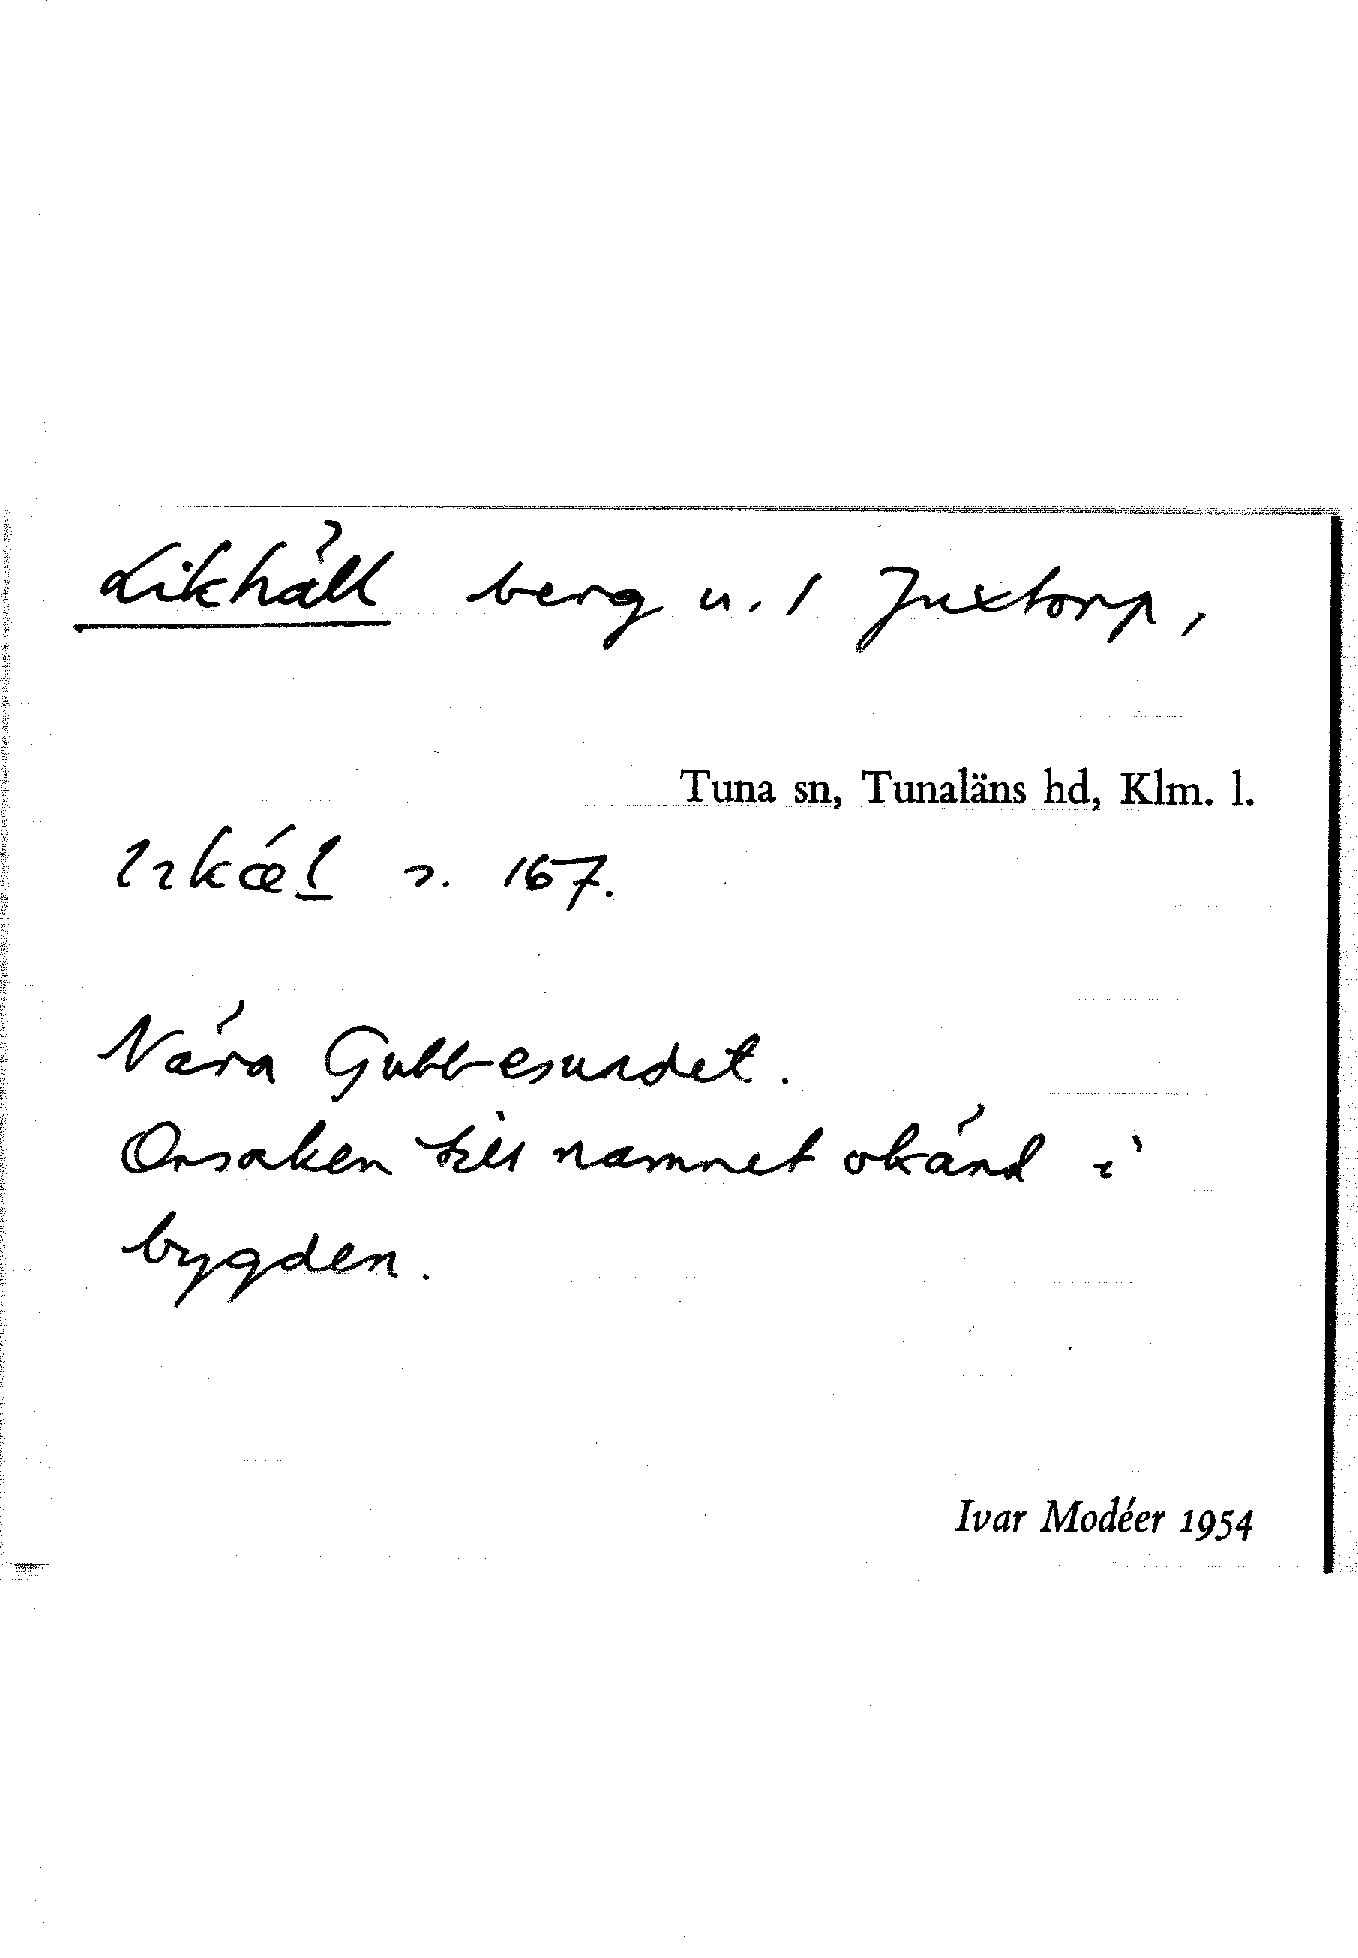 Likhäll berg u. 1 Juxtorp,
Tuna sn, Tunaläns hd, Klm. l.
s. 167.
Nära Gubbesundet.
Orsaken till namnet okänd i
bygden.
Ivar Modéer 1954